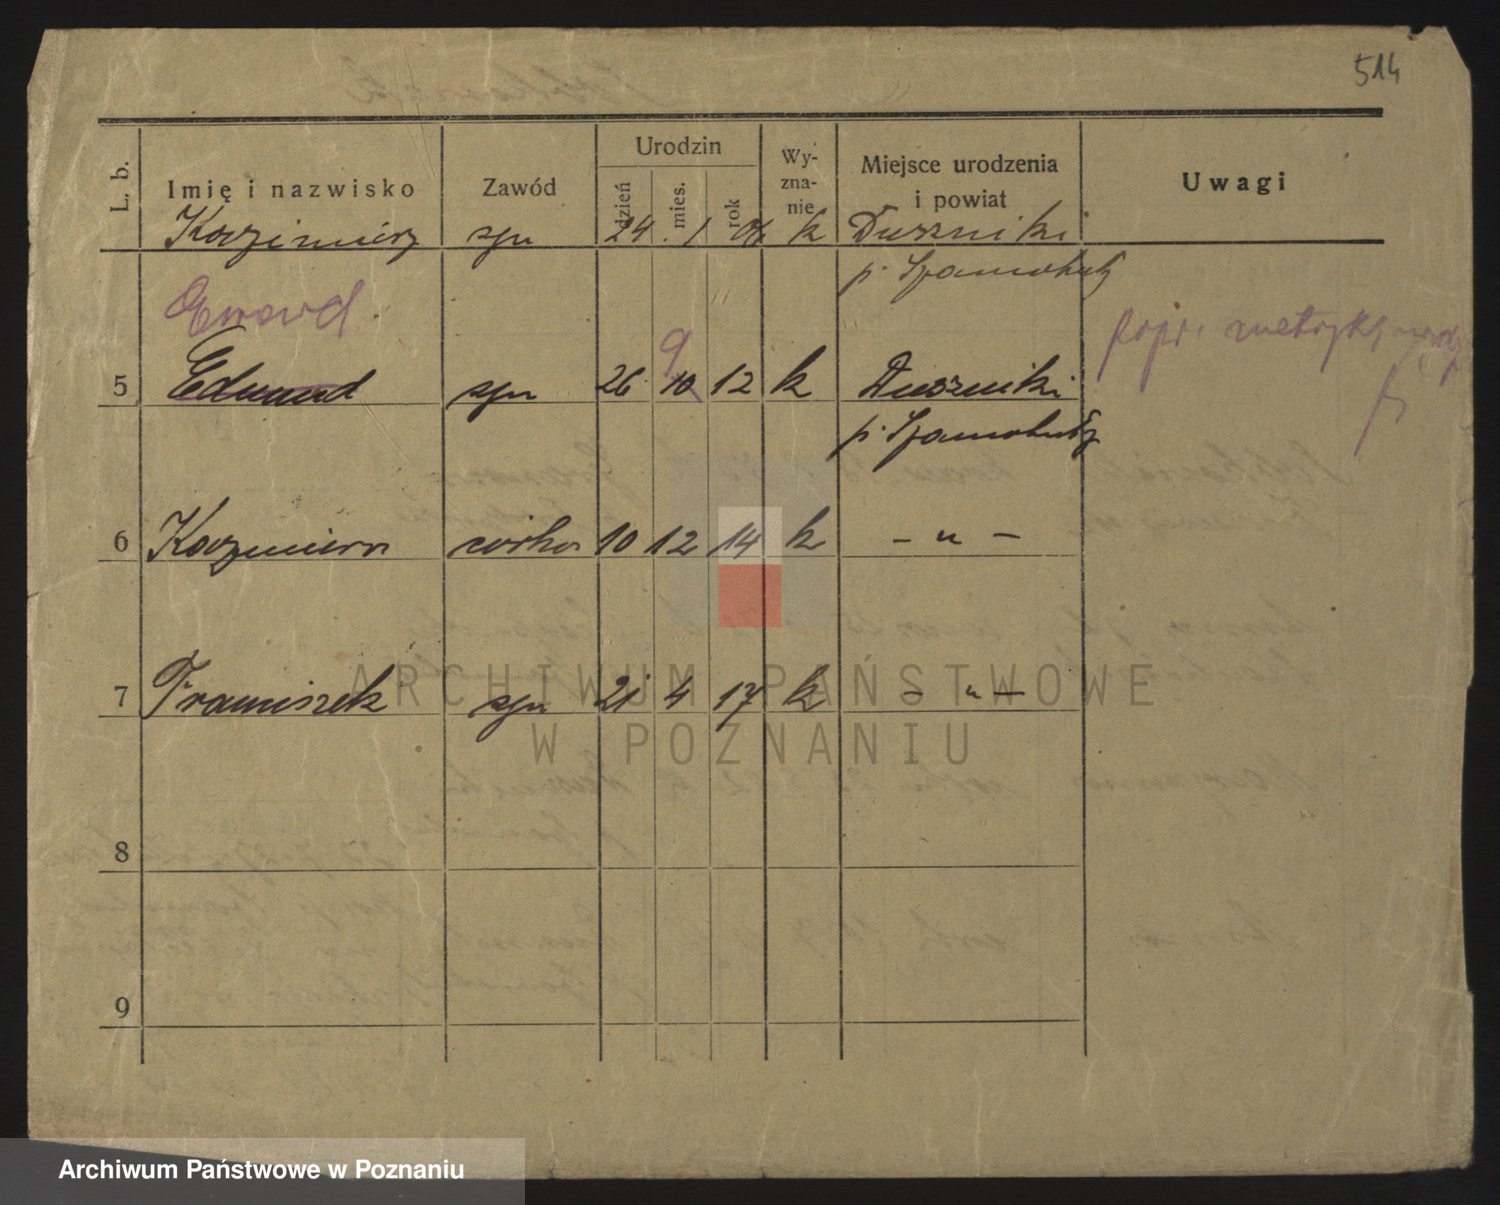 514
L. b. Imię i nazwisko Zawód Urodzin dzień mies. rok Wy-zna-nie Miejsce urodzenia i powiat Uwagi
Kazimierz syn 24. 1 06 k Duszniki
p. Szamotuły
Edward.
9
popr. metryki
5 Edmund syn 26 10 12 k Duszniki
p. Szamotuły
6 Kazimiera córka 10 12 14 k – " –
7 Franciszek syn 21 4 17 k – " –
8
9
ARCHIWUM PAŃSTWOWE
W POZNANIU
Archiwum Państwowe w Poznaniu